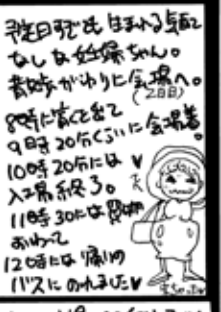 予定日すぎても生まれる気配
なしな妊婦ちゃん。
散歩がわりに会場へ。
(2日目)
8時に家を出て
9時20分くらいに会場着。
10時20分には
入場終了。
11時30には買物
おわって
12時には帰りの
バスにのれました♥